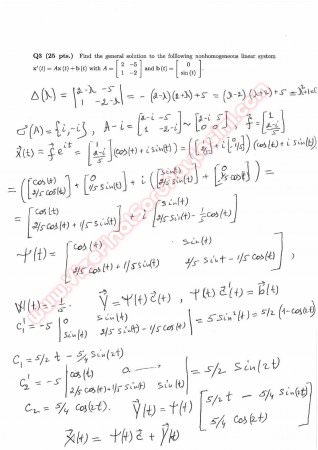 Q3 (25 pts.) Find the general solution to the following nonhomogeneous linear system
x'(t) = Ax(t) + b(t) with A = [2 -5; 1 -2] and b(t) = [0; sin(t)].
Δ(λ) = |2-λ -5; 1 -2-λ| = -(2-λ)(2+λ)+5 = (λ-2)(λ+2)+5 = λ²+1
σ(A) = {i, -i}, A-i = [2-i -5; 1 -2-i] ~ [2-i -5; 0 0] f = [1; 2-i/5]
x(t) = f e^{it} = [1; 2-i/5] (cos(t)+i sin(t)) = ([1; 2/5] + i [0; -1/5]) (cos(t)+i sin(t))
= ([cos(t); 2/5 cos(t)] + [0; 1/5 sin(t)] + i ([sin(t); 2/5 sin(t)] + [0; -1/5 cos(t)])) =
= [cos(t); 2/5 cos(t) + 1/5 sin(t)] + i [sin(t); 2/5 sin(t) - 1/5 cos(t)]
Ψ(t) = [cos(t) sin(t); 2/5 cos(t) + 1/5 sin(t) 2/5 sin t - 1/5 cos(t)],
W(t) = -1/5. Y = Ψ(t) c(t), Ψ(t) c'(t) = b(t)
c₁' = -5 |0 sin(t); sin(t) 2/5 sin(t) - 1/5 cos(t)| = 5 sin²(t) = 5/2 (1-cos(2t))
c₁ = 5/2 t - 5/4 sin(2t)
c₂' = -5 |cos(t) 0; 2/5 cos(t) + 1/5 sin(t) sin(t)| = 5/2 sin(2t)
c₂ = 5/4 cos(2t). Y(t) = Ψ(t) [5/2 t - 5/4 sin(2t); 5/4 cos(2t)]
x(t) = Ψ(t) c + Y(t)